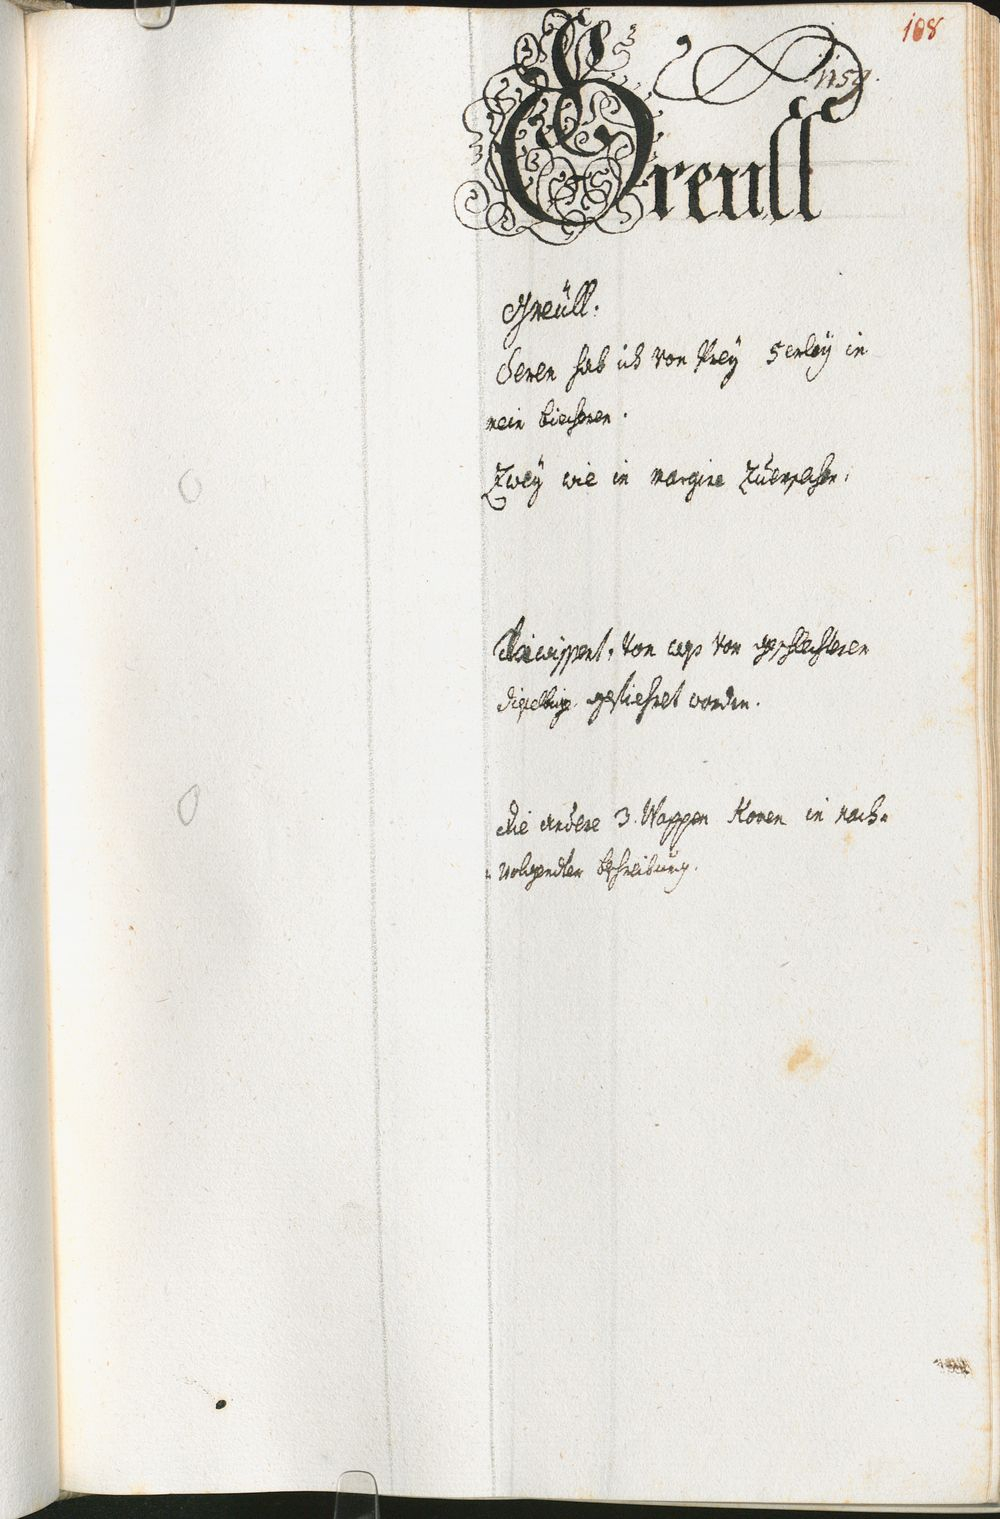 108
1159.
Greull
Greüll.
Deren hab ich von Prey 5erley in
mein biecheren.
Zwey wie in margine Züersechen.
von was von geschlechteren
dieselbige gefiehret worden.
die andere 3. Wappen Komen in nach-
volgendter beschreibung.